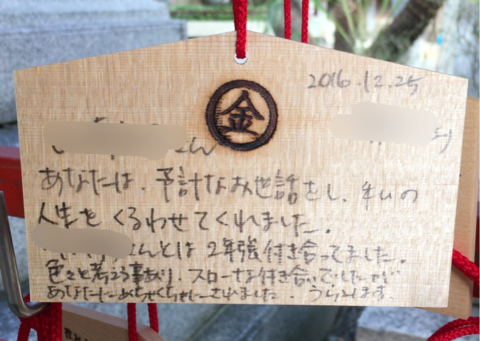 2016.12.25
金
さん
あなたは、予計なお世話をし、私の
人生をくるわせてくれました。
さんとは2年強付き合ってました。
色々と考える事あり、スローな付き合いでしたが
あなたにめちゃくちゃにされました。うらみます。